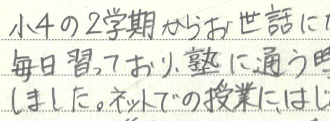 小4の2学期からお世話に
毎日習っており、塾に通う
しました。ネットでの授業に、はじ